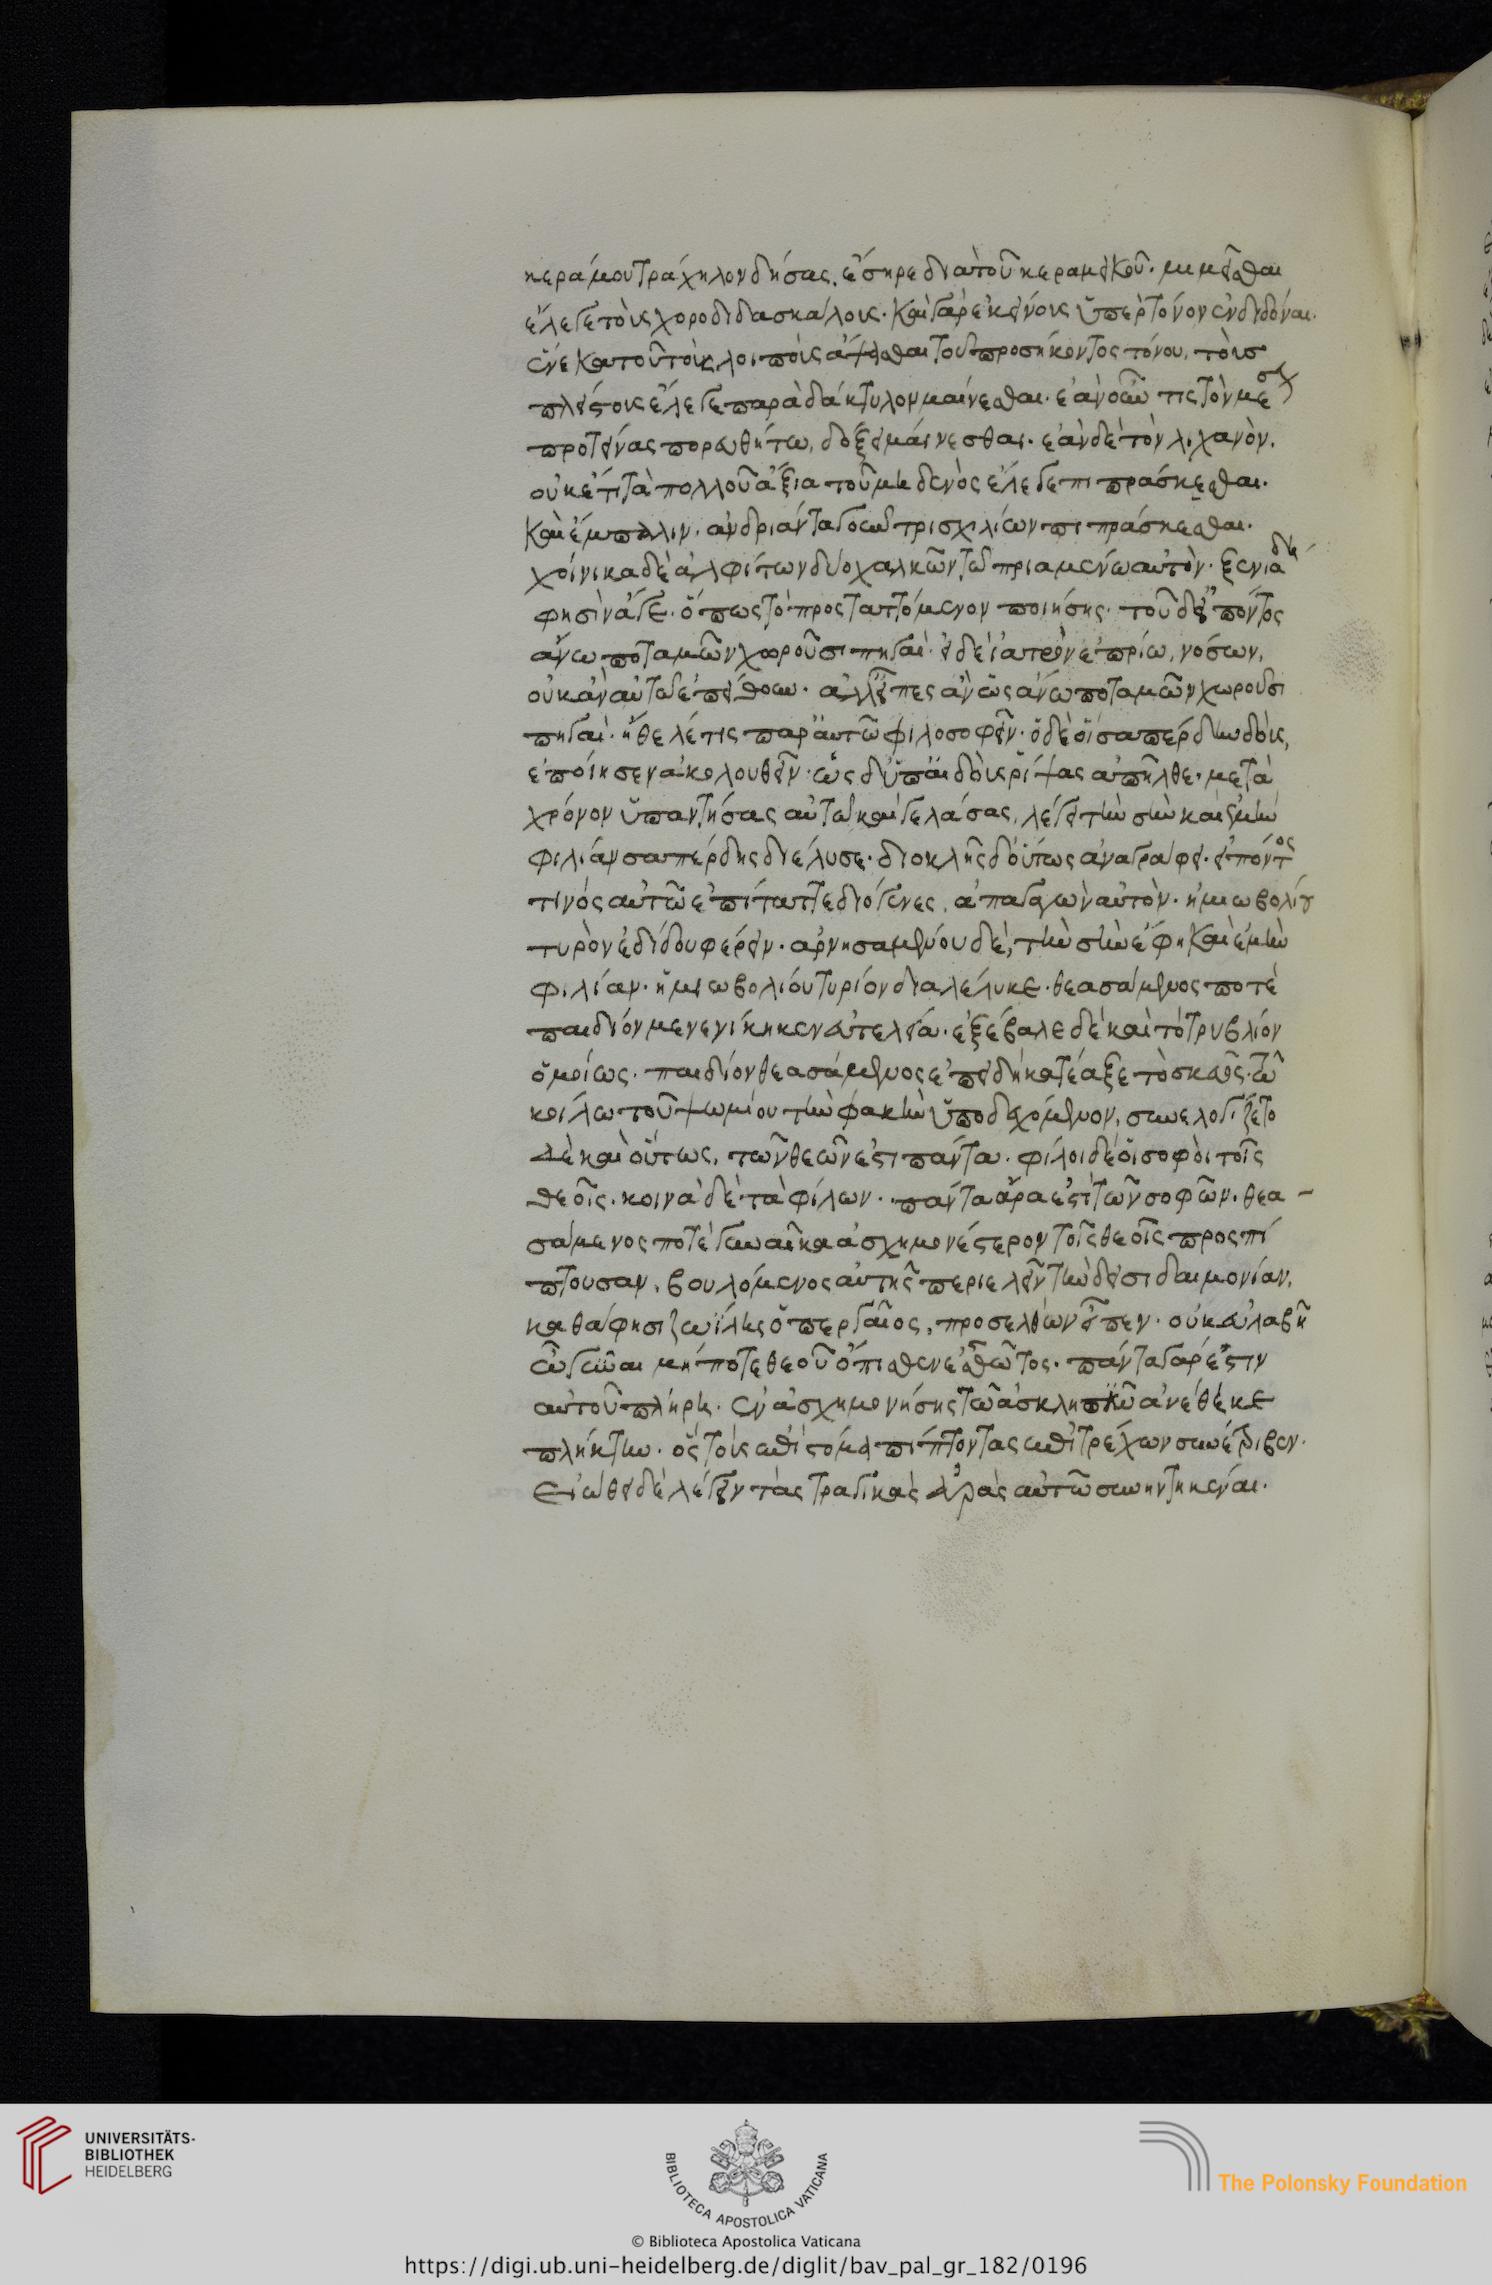 κεράμου τράχηλον δήσας, ἔσυρε διὰ τοῦ κεραμεικοῦ. μιμεῖσθαι
ἔλεγε τοὺς χοροδιδασκάλους. καὶ γὰρ ἐκείνους ὑπὲρ τόνον ἐνδιδόναι.
ἕνεκα τοῦ τοὺς λοιποὺς ἅψασθαι τοῦ προσήκοντος τόνου. τοὺς
πλείστους ἔλεγε παρὰ δάκτυλον μαίνεσθαι. ἐὰν οὖν τις τὸν μέσον
προτείνας πορευθήτω, δόξει μαίνεσθαι. ἐὰν δὲ τὸν λιχανὸν,
οὐκέτι τὰ πολλοῦ ἄξια τοῦ μηδενὸς ἔλεγε πιπράσκεσθαι.
καὶ ἔμπαλιν. ἀνδριάντα γοῦν τρισχιλίων πιπράσκεσθαι.
χοίνικα δὲ ἀλφίτων δύο χαλκῶν, τῷ πριαμένῳ αὐτὸν ξενιάδῃ
φησὶν ἄγε. ὅπως τὸ προσταττόμενον ποιήσῃς. τοῦ δ' εἰπόντος
ἄνω ποταμῶν χωροῦσι πηγαί. εἰ δὲ ἰατρὸν ἐπρίω, νοσῶν,
οὐκ ἂν αὐτῷ ἐπείθου. ἀλλ' εἶπες ἂν ὡς ἄνω ποταμῶν χωροῦσι
πηγαί. ἤθελέ τις παρ' αὐτῷ φιλοσοφεῖν. ὁ δὲ οἷ σαπέρδην δοὺς,
ἐποίησεν ἀκολουθεῖν. ὡς δ' ὑπ' αἰδοῦς ῥίψας ἀπῆλθε. μετὰ
χρόνον ὑπαντήσας αὐτῷ καὶ γελάσας, λέγει τὴν σὴν καὶ ἐμὴν
φιλίαν σαπέρδης διέλυσε. διοκλῆς δ' οὕτως ἀναγράφει. εἰπόντος
τινὸς αὐτῷ ἐπίταττε διόγενες, ἀπαγαγὼν αὐτὸν. ἡμιωβολίου
τυρὸν ἐδίδου φέρειν. ἀρνησαμένου δὲ, τὴν σὴν ἔφη καὶ ἐμὴν
φιλίαν. ἡμιωβολίου τυρίον διαλέλυκε. θεασάμενος ποτὲ
παιδίον μενενίκηκεν εὐτελεία. ἐξέβαλε δὲ καὶ τὸ τρυβλίον
ὁμοίως. παιδίον θεασάμενος ἐπειδὴ κατέαξε τὸ σκεῦος. τῷ
κοίλῳ τοῦ ψωμίου τὴν φακὴν ὑποδεχόμενον, συνελογίζετο
δὲ καὶ οὕτως, τῶν θεῶν ἐστι πάντα. φίλοι δὲ οἱ σοφοὶ τοῖς
θεοῖς. κοινὰ δὲ τὰ φίλων. πάντα ἄρα ἐστὶ τῶν σοφῶν. θεα-
σάμενος ποτὲ γυναῖκα ἀσχημονέστερον τοῖς θεοῖς προσπί
πτουσαν, βουλόμενος αὐτῆς περιελεῖν τὴν δεισιδαιμονίαν,
καθά φησι ζωΐλης ὁ περγαῖος, προσελθὼν εἶπεν. οὐκ εὐλαβῇ
ὦ γύναι μήποτε θεοῦ ὄπισθεν ἑστῶτος. πάντα γάρ ἐστιν
αὐτοῦ πλήρη. ἐν ἀσχημονήσῃς τῷ ἀσκληπιῷ ἀνέθηκε
πλήκτην. ὃς τοὺς ἐπὶ στόμα πίπτοντας ἐπιτρέχων συνέτριβεν.
Εἰώθει δὲ λέγειν τὰς τραγικὰς ἀρὰς αὐτῷ συνηντηκέναι.
UNIVERSITÄTS-
BIBLIOTHEK
HEIDELBERG
BIBLIOTECA APOSTOLICA VATICANA
The Polonsky Foundation
© Biblioteca Apostolica Vaticana
https://digi.ub.uni-heidelberg.de/diglit/bav_pal_gr_182/0196